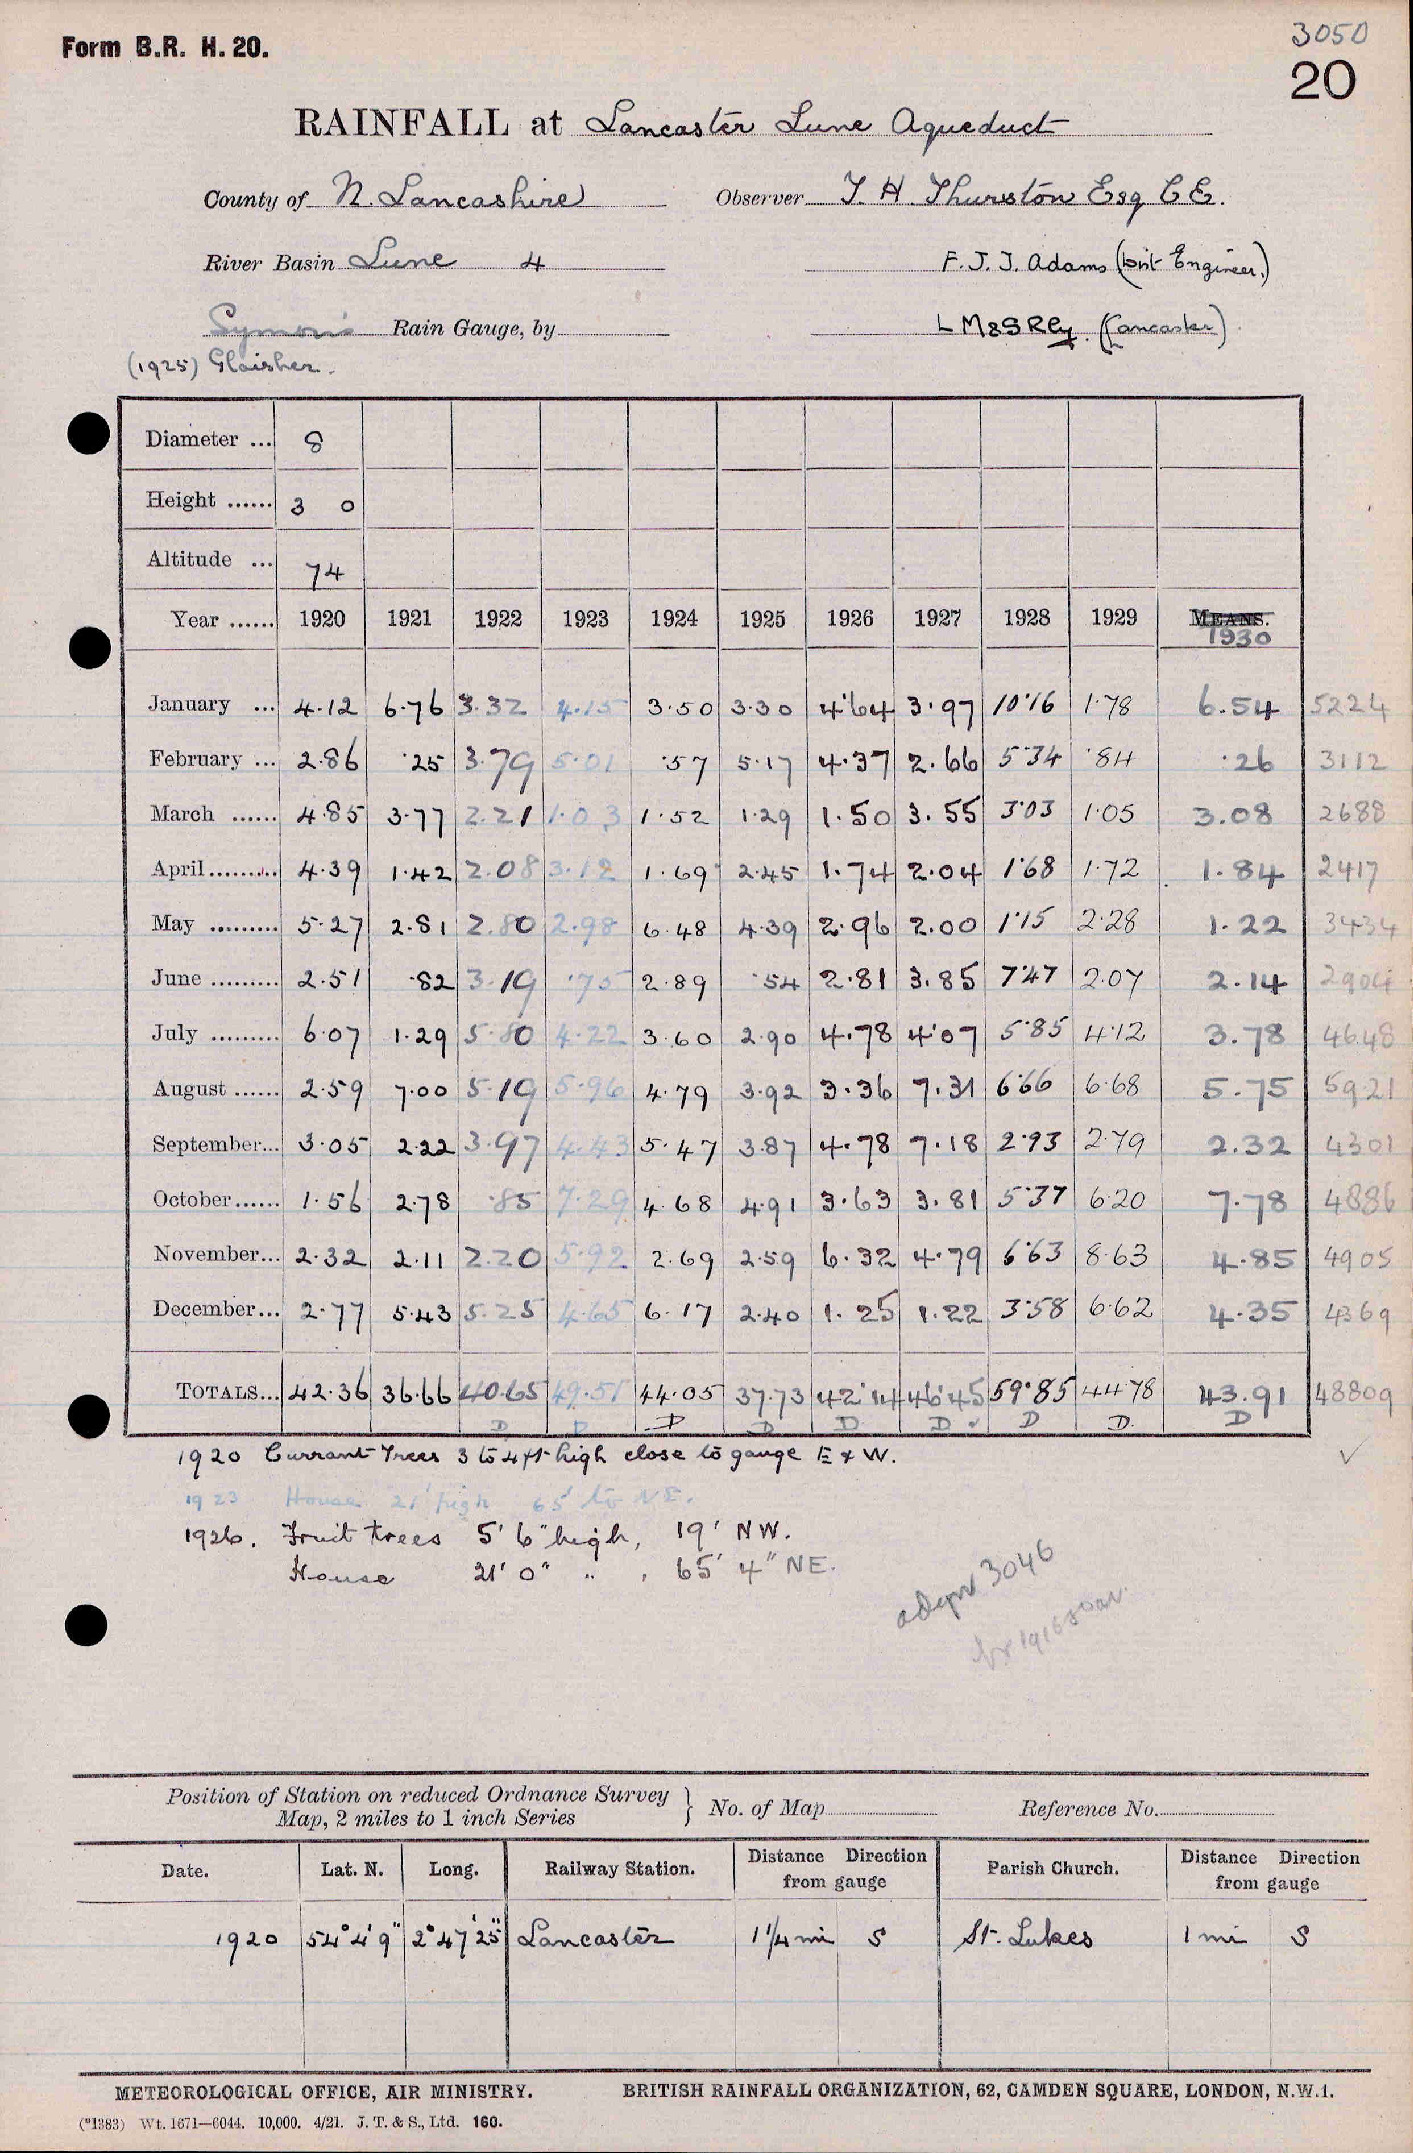 3050
Form B.R. H. 20.
20
RAINFALL at Lancaster Lune Aqueduct
County of N. Lancashire Observer T. H. Thurston Esq C E.
River Basin Lune 4 F. J. J. Adams (Dist Engineer.)
Symon's Rain Gauge, by L M & S Rly. (Lancaster)
(1925) Glaisher.
Diameter ... 8
Height ...... 3 0
Altitude ... 74
Year ...... 1920 1921 1922 1923 1924 1925 1926 1927 1928 1929 MEANS.
1930
January ... 4.12 6.76 3.32 4.15 3.50 3.30 4.64 3.97 10.16 1.78 6.54 5224
February ... 2.86 .25 3.79 5.01 .57 5.17 4.37 2.66 5.34 .84 .26 3112
March ...... 4.85 3.77 2.21 1.03 1.52 1.29 1.50 3.55 3.03 1.05 3.08 2688
April......... 4.39 1.42 2.08 3.12 1.69 2.45 1.74 2.04 1.68 1.72 1.84 2417
May ......... 5.27 2.81 2.80 2.98 6.48 4.39 2.96 2.00 1.15 2.28 1.22 3434
June ......... 2.51 .82 3.19 .75 2.89 .54 2.81 3.85 7.47 2.07 2.14 2904
July ......... 6.07 1.29 5.80 4.22 3.60 2.90 4.78 4.07 5.85 4.12 3.78 4648
August ...... 2.59 7.00 5.19 5.96 4.79 3.92 3.36 7.31 6.66 6.68 5.75 5921
September... 3.05 2.22 3.97 4.43 5.47 3.87 4.78 7.18 2.93 2.79 2.32 4301
October...... 1.56 2.78 .85 7.29 4.68 4.91 3.63 3.81 5.37 6.20 7.78 4886
November... 2.32 2.11 2.20 5.92 2.69 2.59 6.32 4.79 6.63 8.63 4.85 4905
December... 2.77 5.43 5.25 4.65 6.17 2.40 1.25 1.22 3.58 6.62 4.35 4369
TOTALS... 42.36 36.66 40.65 49.51 44.05 37.73 42.14 46.45 59.85 44.78 43.91 48809
D D D D D D D D D
1920 Currant Trees 3 to 4 ft high close to gauge E & W. ✓
1923 House 21' high 65' to NE.
1926. Fruit trees 5' 6" high, 19' NW.
House 21' 0" " , 65' 4" NE.
3046
1916
Position of Station on reduced Ordnance Survey
Map, 2 miles to 1 inch Series } No. of Map Reference No.
Date. Lat. N. Long. Railway Station. Distance Direction from gauge Parish Church. Distance Direction from gauge
1920 54° 4' 9" 2° 47' 25" Lancaster 1 1/4 mi S St. Lukes 1 mi S
METEOROLOGICAL OFFICE, AIR MINISTRY. BRITISH RAINFALL ORGANIZATION, 62, CAMDEN SQUARE, LONDON, N.W.1.
(*1383) Wt. 1671—6044. 10,000. 4/21. J. T. & S., Ltd. 160.